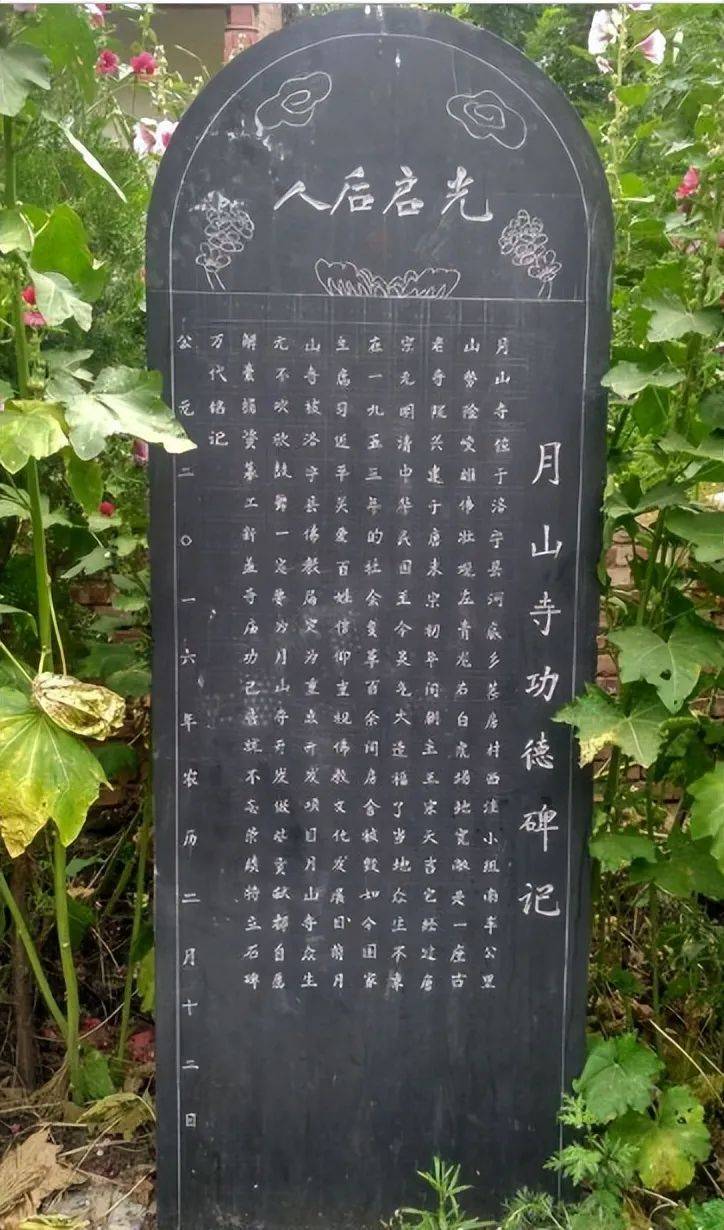 光启后人
月山寺功德碑记
月山寺位于洛宁县河底乡房村西洼小组南半公里
山势险峻雄伟壮观左青龙右白虎场地宽敞是一座古
老寺院兴建于唐末宗初年间刷主玉宋天吉它经过唐
宗元明清中华民国至今灵气大造福了当地众生不幸
在一九五三年的社会变革百余间房舍被毁如今国家
主席习近平关爱百姓信仰重视佛教文化发展目前月
山寺被洛宁县佛教局定为重点开发项目月山寺众生
无不欢欣鼓舞一定要为月山寺开发做出贡献都自愿
解囊捐资募工新盖寺庙功己告竣不忘荣绩特立石碑
万代铭记
公元二〇一六年农历二月十二日